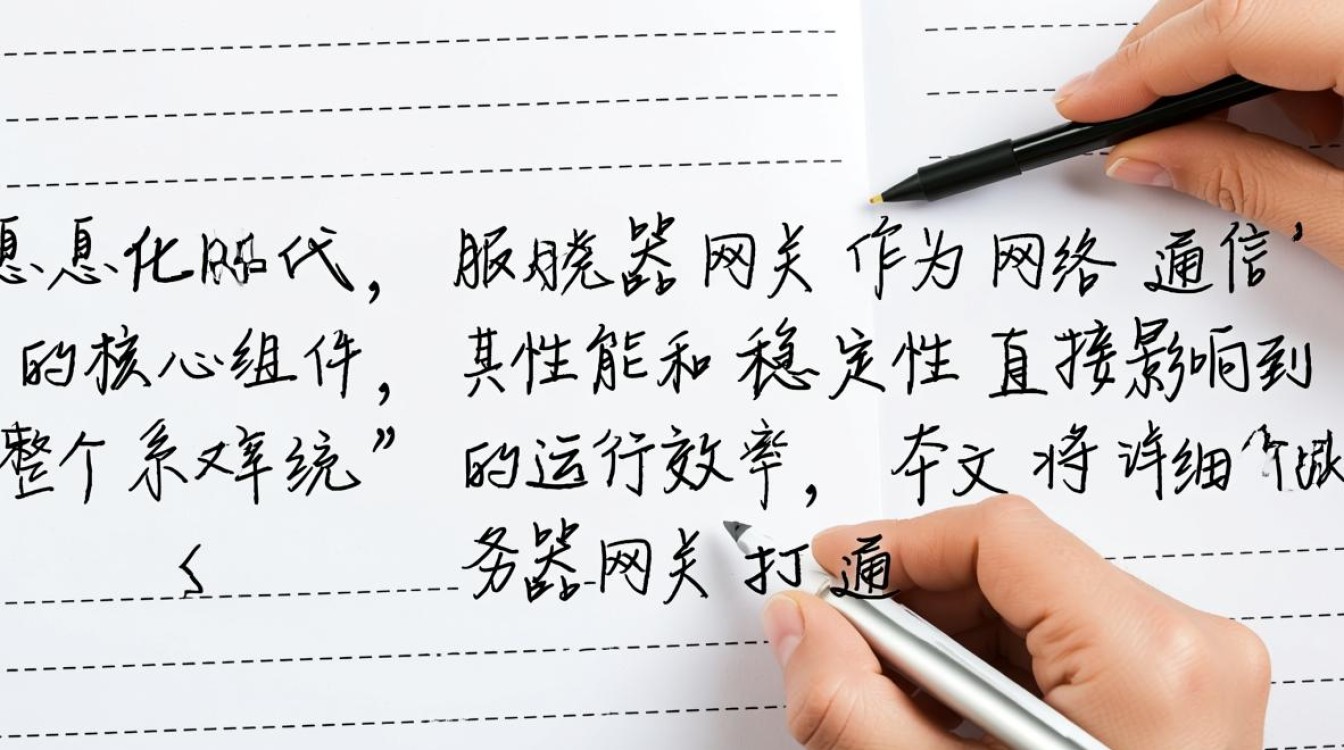 息息化时代, 服务器网关作为网络通信'
的核心组件, 其性能和稳定性直接影响到
整个系 统” 的运行效率, 本文将详细
务器网关打通